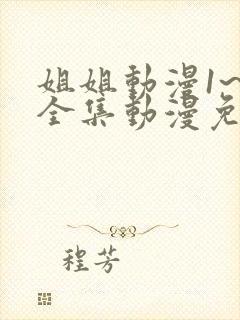 姐姐動漫1~
全集動漫免
程芳